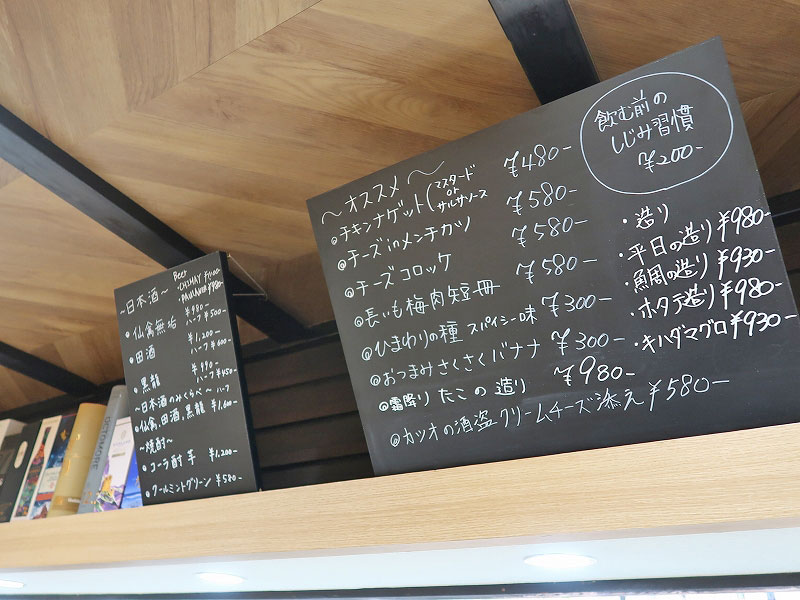 ~日本酒~
Beer
・CHIMAY ¥1100
・PAULANER ¥980
・仙禽無垢 ¥980-
ハーフ ¥500-
・田酒 ¥1,200-
ハーフ ¥600-
・黒龍 ¥990-
ハーフ ¥450-
~日本酒のみくらべ~ ハーフ
・仙禽,田酒,黒龍 ¥1,600-
~焼酎~
・コーラ酎 芋 ¥1,200-
・クールミントグリーン ¥580-
~オススメ~
◎チキンナゲット(マスタード or サルサソース ¥480-
◎チーズinメンチカツ ¥580-
◎チーズコロッケ ¥580-
◎長いも梅肉短冊 ¥580-
◎ひまわりの種 スパイシー味 ¥300-
◎おつまみさくさくバナナ ¥300-
◎霜降りたこの造り ¥980-
◎カツオの酒盗クリームチーズ添え ¥580-
飲む前の
しじみ習慣
¥200-
・造り
・平目の造り ¥980-
・鯛の造り ¥930-
・ホタテ造り ¥980-
・キハダマグロ ¥930-
OCTOMORE